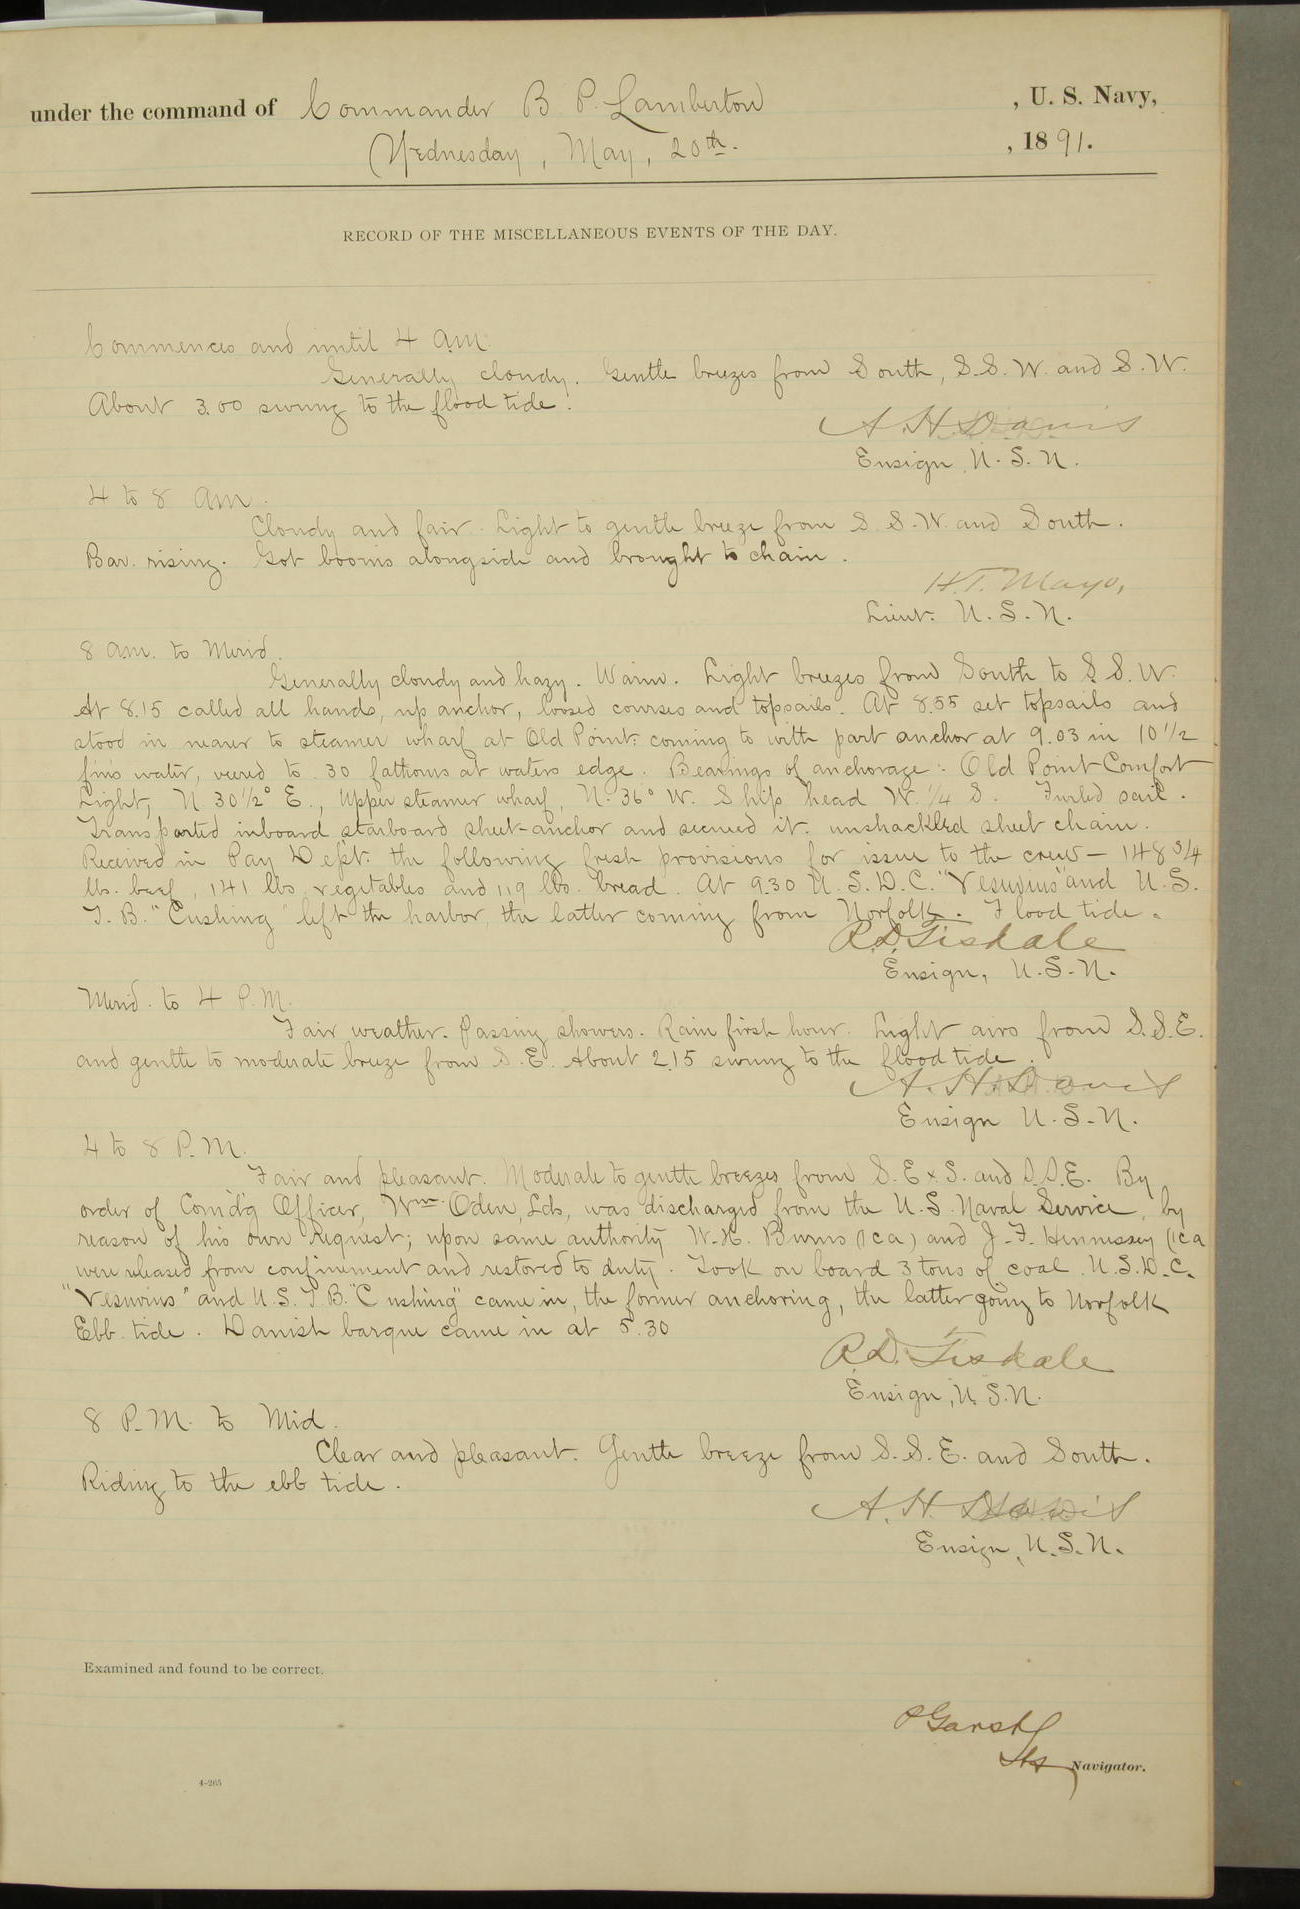 under the command of Commander B. P. Lamberton , U. S. Navy,
Wednesday, May, 20th. , 1891.
RECORD OF THE MISCELLANEOUS EVENTS OF THE DAY.
Commences and until 4 a.m.
Generally cloudy. Gentle breezes from South, S.S.W. and S.W.
About 3.00 swung to the flood tide.
A.H. Davis
Ensign, U.S.N.
4 to 8 am.
Cloudy and fair. Light to gentle breeze from S.S.W. and South.
Bar. rising. Got booms alongside and brought to chain.
H.T. Mayo,
Lieut. U.S.N.
8 am. to Merid.
Generally cloudy and hazy. Warm. Light breezes from South to S.S.W.
At 8.15 called all hands, up anchor, loosed courses and topsails. At 8.55 set topsails and
stood in nearer to steamer wharf at Old Point: coming to with port anchor at 9.03 in 10 1/2
fms water, veered to 30 fathoms at waters edge. Bearings of anchorage: Old Point Comfort
Light, N 30 1/2° E., Upper steamer wharf, N. 36° W. Ship head W. 1/4 S. Furled sail.
Transported inboard starboard sheet-anchor and secured it. unshackled sheet chain.
Received in Pay Dept. the following fresh provisions for issue to the crew — 148 3/4
lbs. beef, 141 lbs vegetables and 119 lbs. bread. At 9.30 U.S.D.C. "Vesuvius" and U.S.
T.B. "Cushing" left the harbor, the latter coming from Norfolk. Flood tide.
R.D. Tisdale
Ensign, U.S.N.
Merid. to 4 P.M.
Fair weather. Passing showers. Rain first hour. Light airs from S.S.E.
and gentle to moderate breeze from S.E. About 2.15 swung to the flood tide.
A.H. Davis
Ensign U.S.N.
4 to 8 P.M.
Fair and pleasant. Moderate to gentle breezes from S.E x S. and S.S.E. By
order of Com'd'g Officer, Wm. Oden, Lds, was discharged from the U.S. Naval Service, by
reason of his own request; upon same authority W.H. Burns (1ca) and J.F. Hennessey (1ca
were released from confinement and restored to duty. Took on board 3 tons of coal. U.S.D.C.
"Vesuvius" and U.S.T.B. "Cushing" came in, the former anchoring, the latter going to Norfolk
Ebb tide. Danish barque came in at 5.30
R.D. Tisdale
Ensign, U.S.N.
8 P.M. to Mid.
Clear and pleasant. Gentle breeze from S.S.E. and South.
Riding to the ebb tide.
A.H. Davis
Ensign, U.S.N.
Examined and found to be correct.
P Garst
Navigator.
4-265